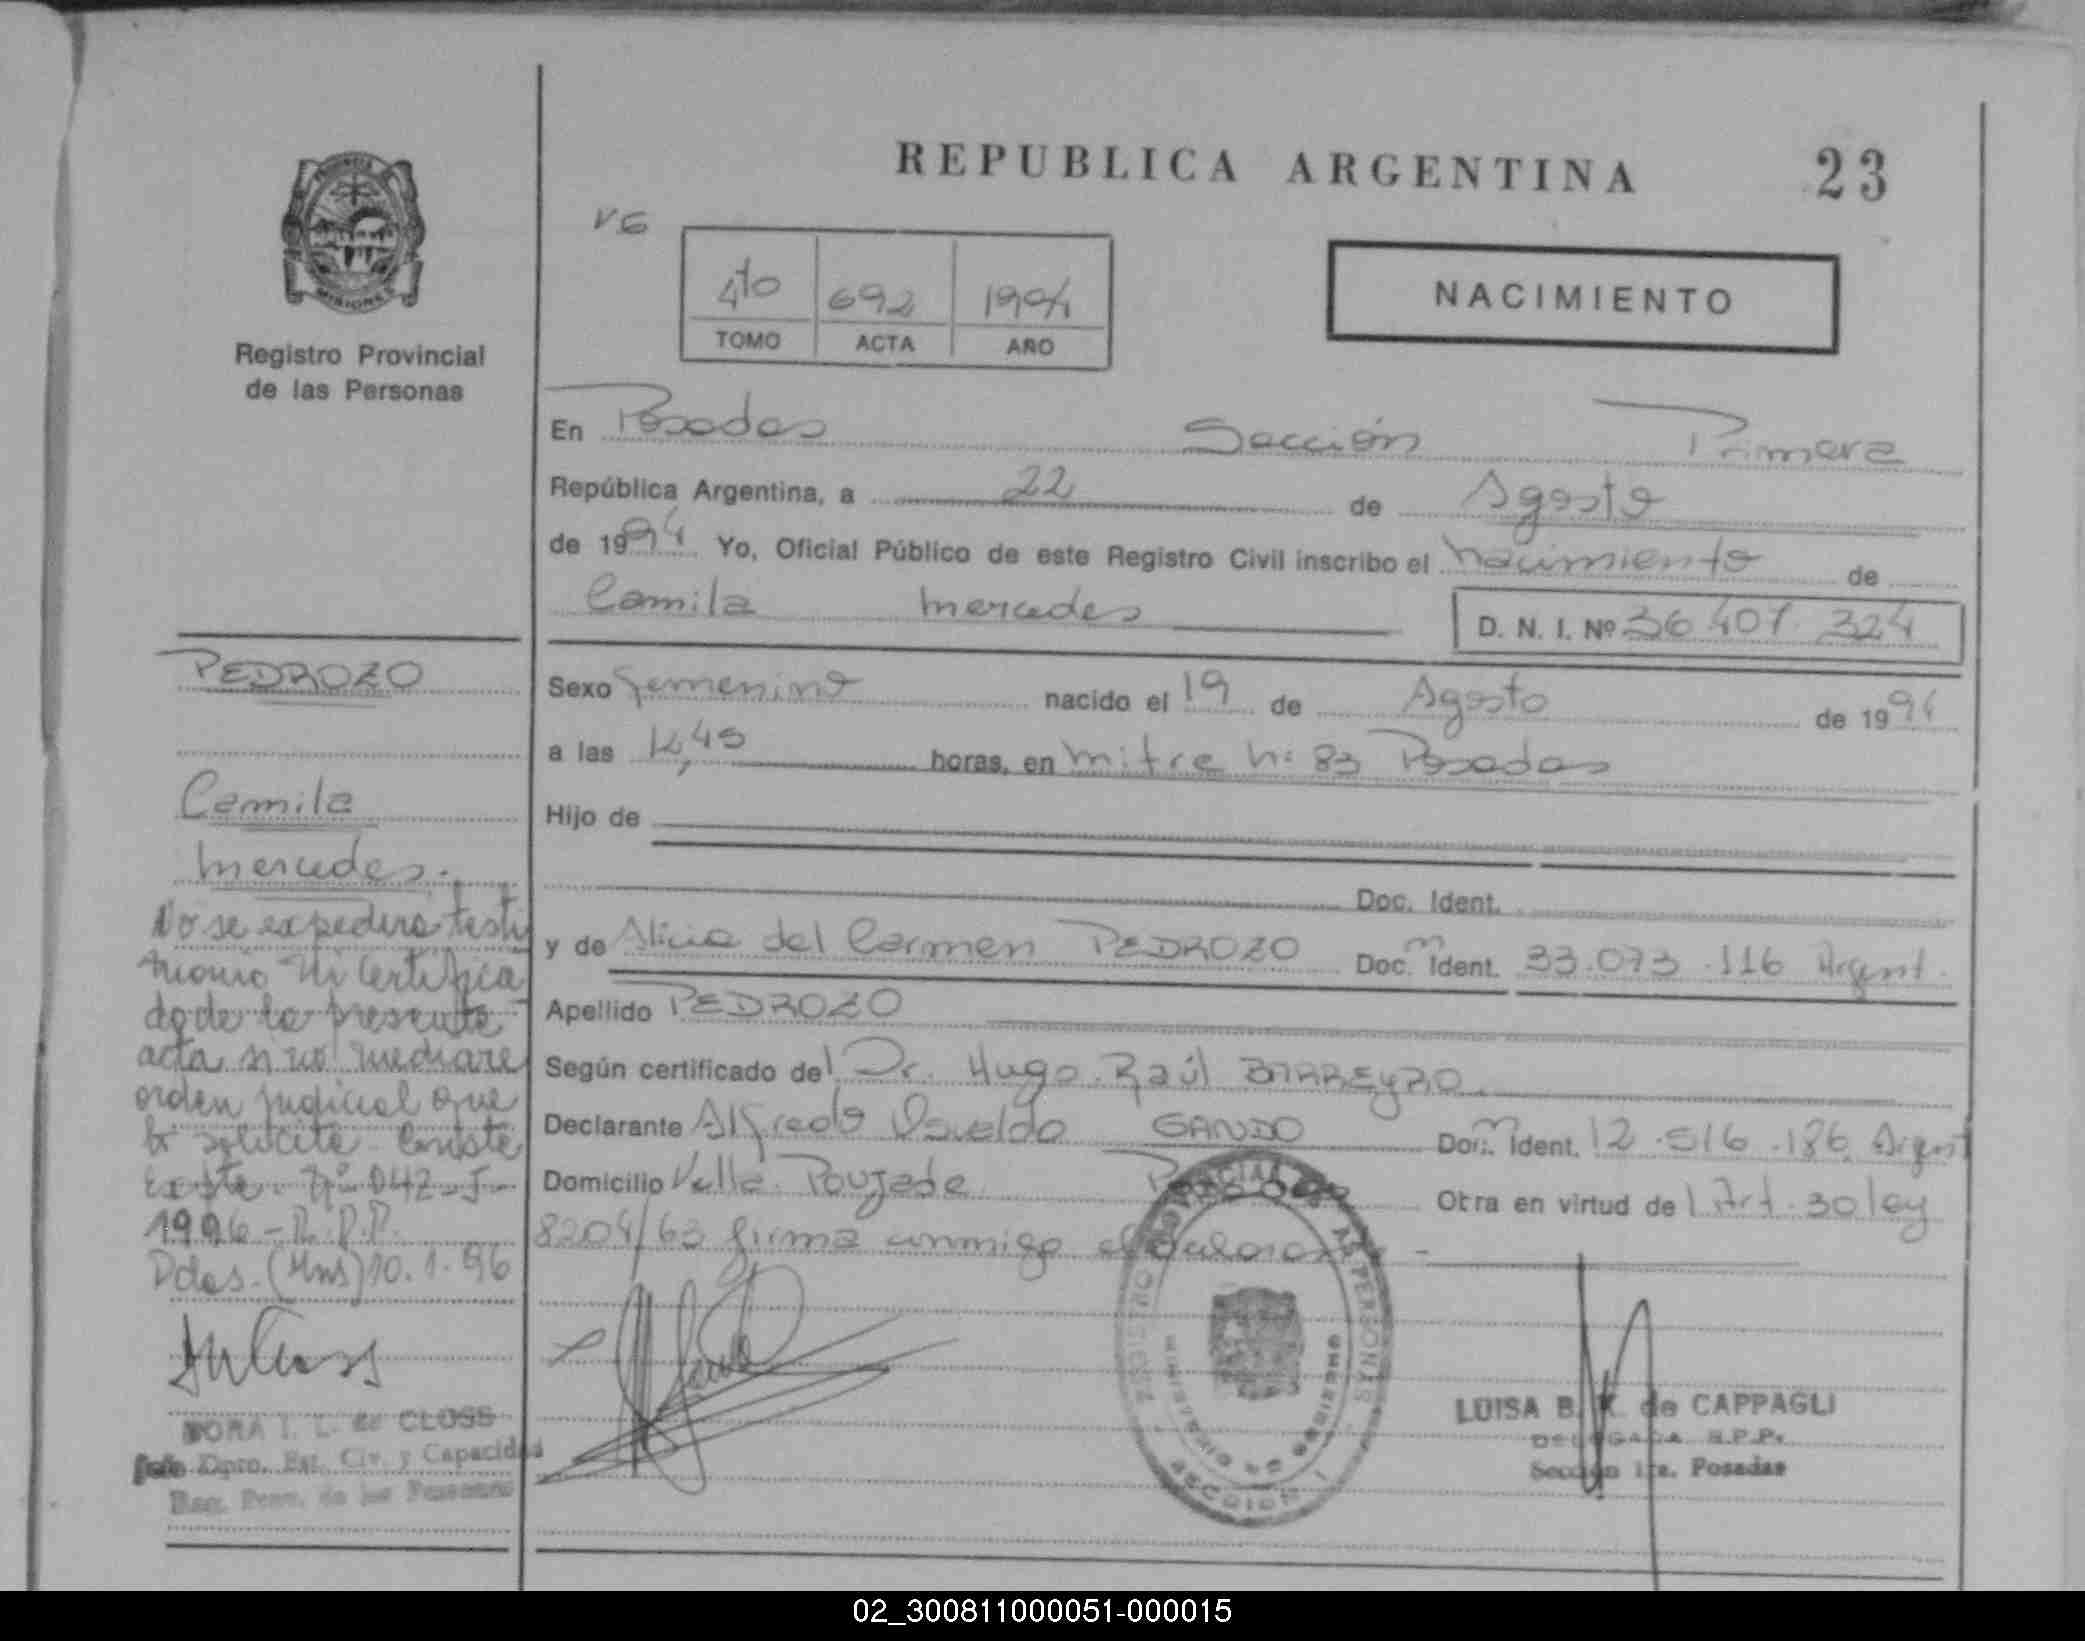 REPUBLICA ARGENTINA
23
PROVINCIA
MISIONES
Registro Provincial
de las Personas
4to 692 1994
TOMO ACTA AÑO
NACIMIENTO
En Posadas Sección Primera
República Argentina, a 22 de Agosto
de 1994 Yo, Oficial Público de este Registro Civil inscribo el nacimiento de
Camila Mercedes D. N. I. Nº 36.407.324
Sexo Femenino nacido el 19 de Agosto de 1994
a las horas, en Mitre Nº 83 Posadas
Hijo de
Doc. Ident.
y de Alicia del Carmen PEDROZO Doc. Ident. 33.073.116 Argent.
Apellido PEDROZO
Según certificado del Dr. Hugo Raúl BARREYRO
Declarante Alfredo Osvaldo GANDO Doc. Ident. 12.516.186 Argent
Domicilio Villa Poujade Posadas Otra en virtud del Art. 30 ley
8204/63 firma conmigo el declarante
PEDROZO
Camila
Mercedes.
No se expedira testi
monio ni certifica
do de la presente
acta si no mediare
orden judicial que
lo solicite. Conste
Expte. Nº 042-J-
1996 - R.P.P.
Pdas. (Mns) 10.1.96
NORA I. L. de CLOSS
Jefe Dpto. Est. Civ. y Capacidad
Reg. Prov. de las Personas
MINISTERIO DE GOBIERNO
SECCION 1
LUISA B. K. de CAPPAGLI
DELEGADA R.P.P.
Sección 1ra. Posadas
02_300811000051-000015